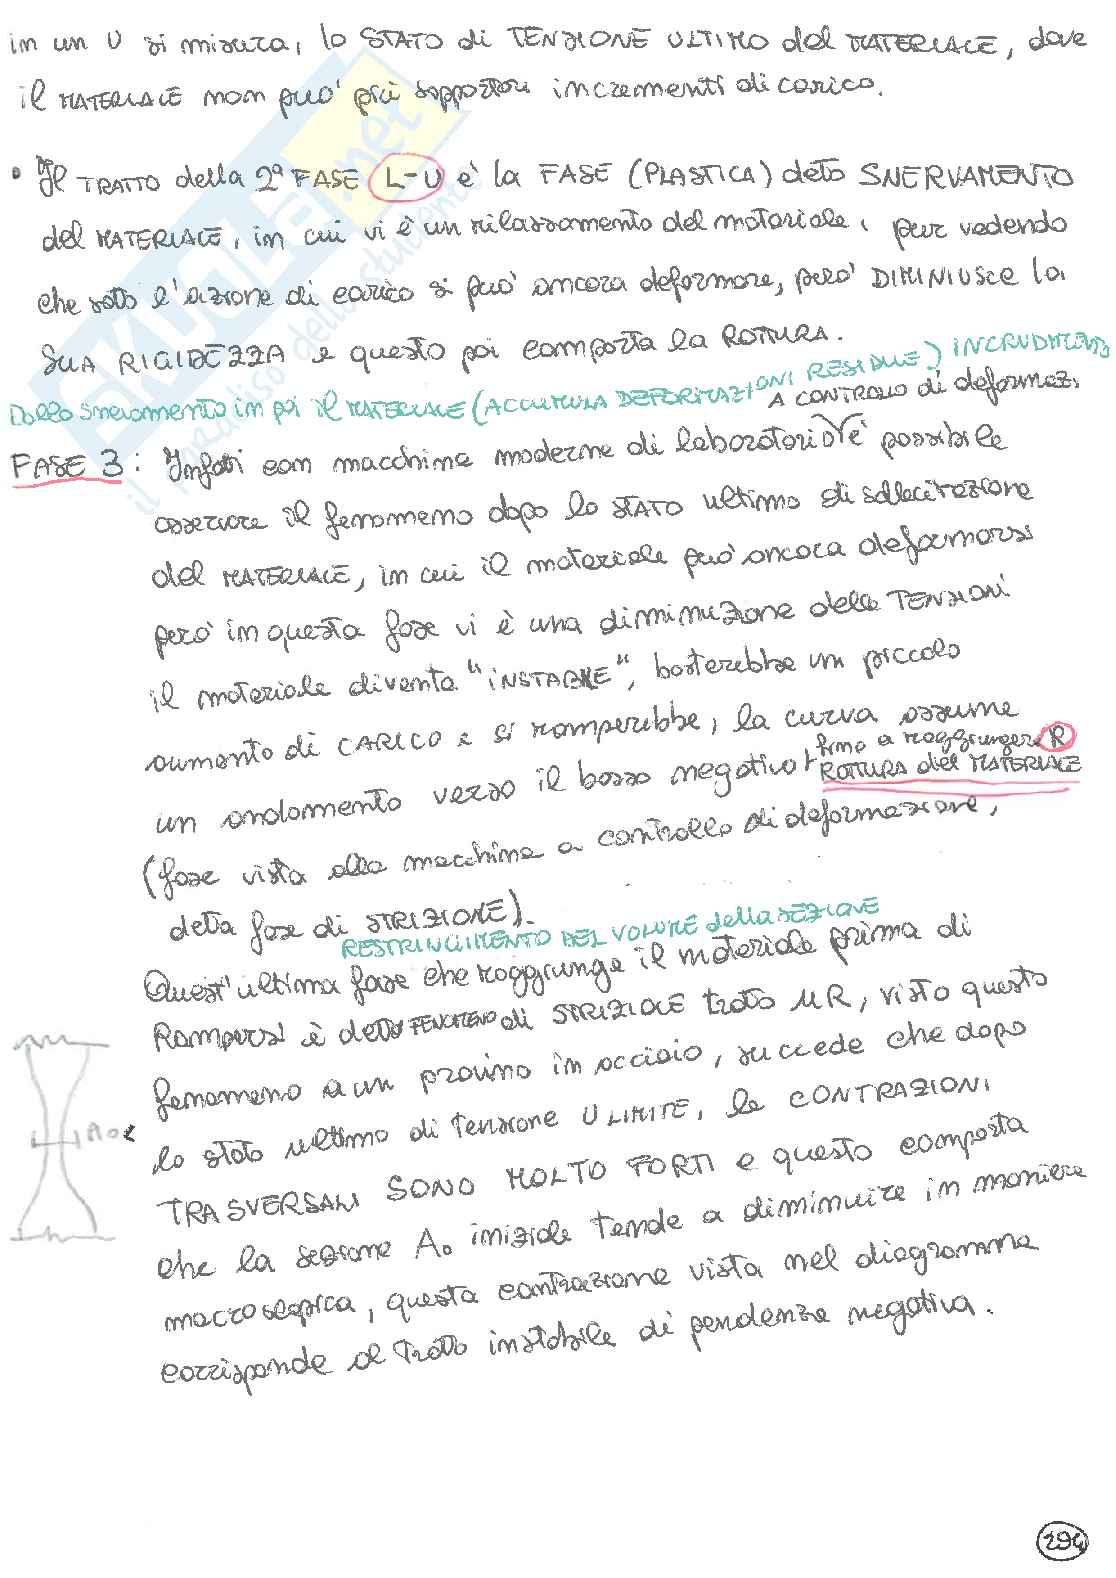 in un U si misura, lo STATO di TENSIONE ULTIMO del MATERIALE, dove
il MATERIALE non può più sopportare incrementi di carico.
• Il TRATTO della 2ª FASE L-U è la FASE (PLASTICA) detto SNERVAMENTO
del MATERIALE, in cui vi è un rilassamento del materiale, pur vedendo
che sotto l'azione di carico si può ancora deformare, però DIMINIUSCE la
SUA RIGIDEZZA e questo poi comporta la ROTTURA.
Dallo snervamento in poi il MATERIALE (ACCUMULA DEFORMAZIONI RESIDUE) INCRUDIMENTO
A CONTROLLO di deformaz.
FASE 3: Infatti con macchine moderne di laboratorio è possibile
osservare il fenomeno dopo lo STATO ultimo di sollecitazione
del MATERIALE, in cui il materiale può ancora deformarsi
però in questa fase vi è una diminuzione delle TENSIONI
il materiale diventa "INSTABILE", basterebbe un piccolo
aumento di CARICO e si romperebbe, la curva assume
un andamento verso il basso negativo, fino a raggiungere R
ROTTURA del MATERIALE
(fase vista alla macchina a controllo di deformazione,
detta fase di STRIZIONE).
RESTRINGIMENTO DEL VOLUME della SEZIONE
Quest'ultima fase che raggiunge il materiale prima di
Rompersi è detto FENOMENO di STRIZIONE tratto UR, visto questo
fenomeno a un provino in acciaio, succede che dopo
lo stato ultimo di tensione U LIMITE, le CONTRAZIONI
TRASVERSALI SONO MOLTO FORTI e questo comporta
che la sezione A₀ iniziale tende a diminuire in maniera
macroscopica, questa contrazione vista nel diagramma
corrisponde al tratto instabile di pendenza negativa.
A₀
294
il paradiso dello studente
SKUOLA.net